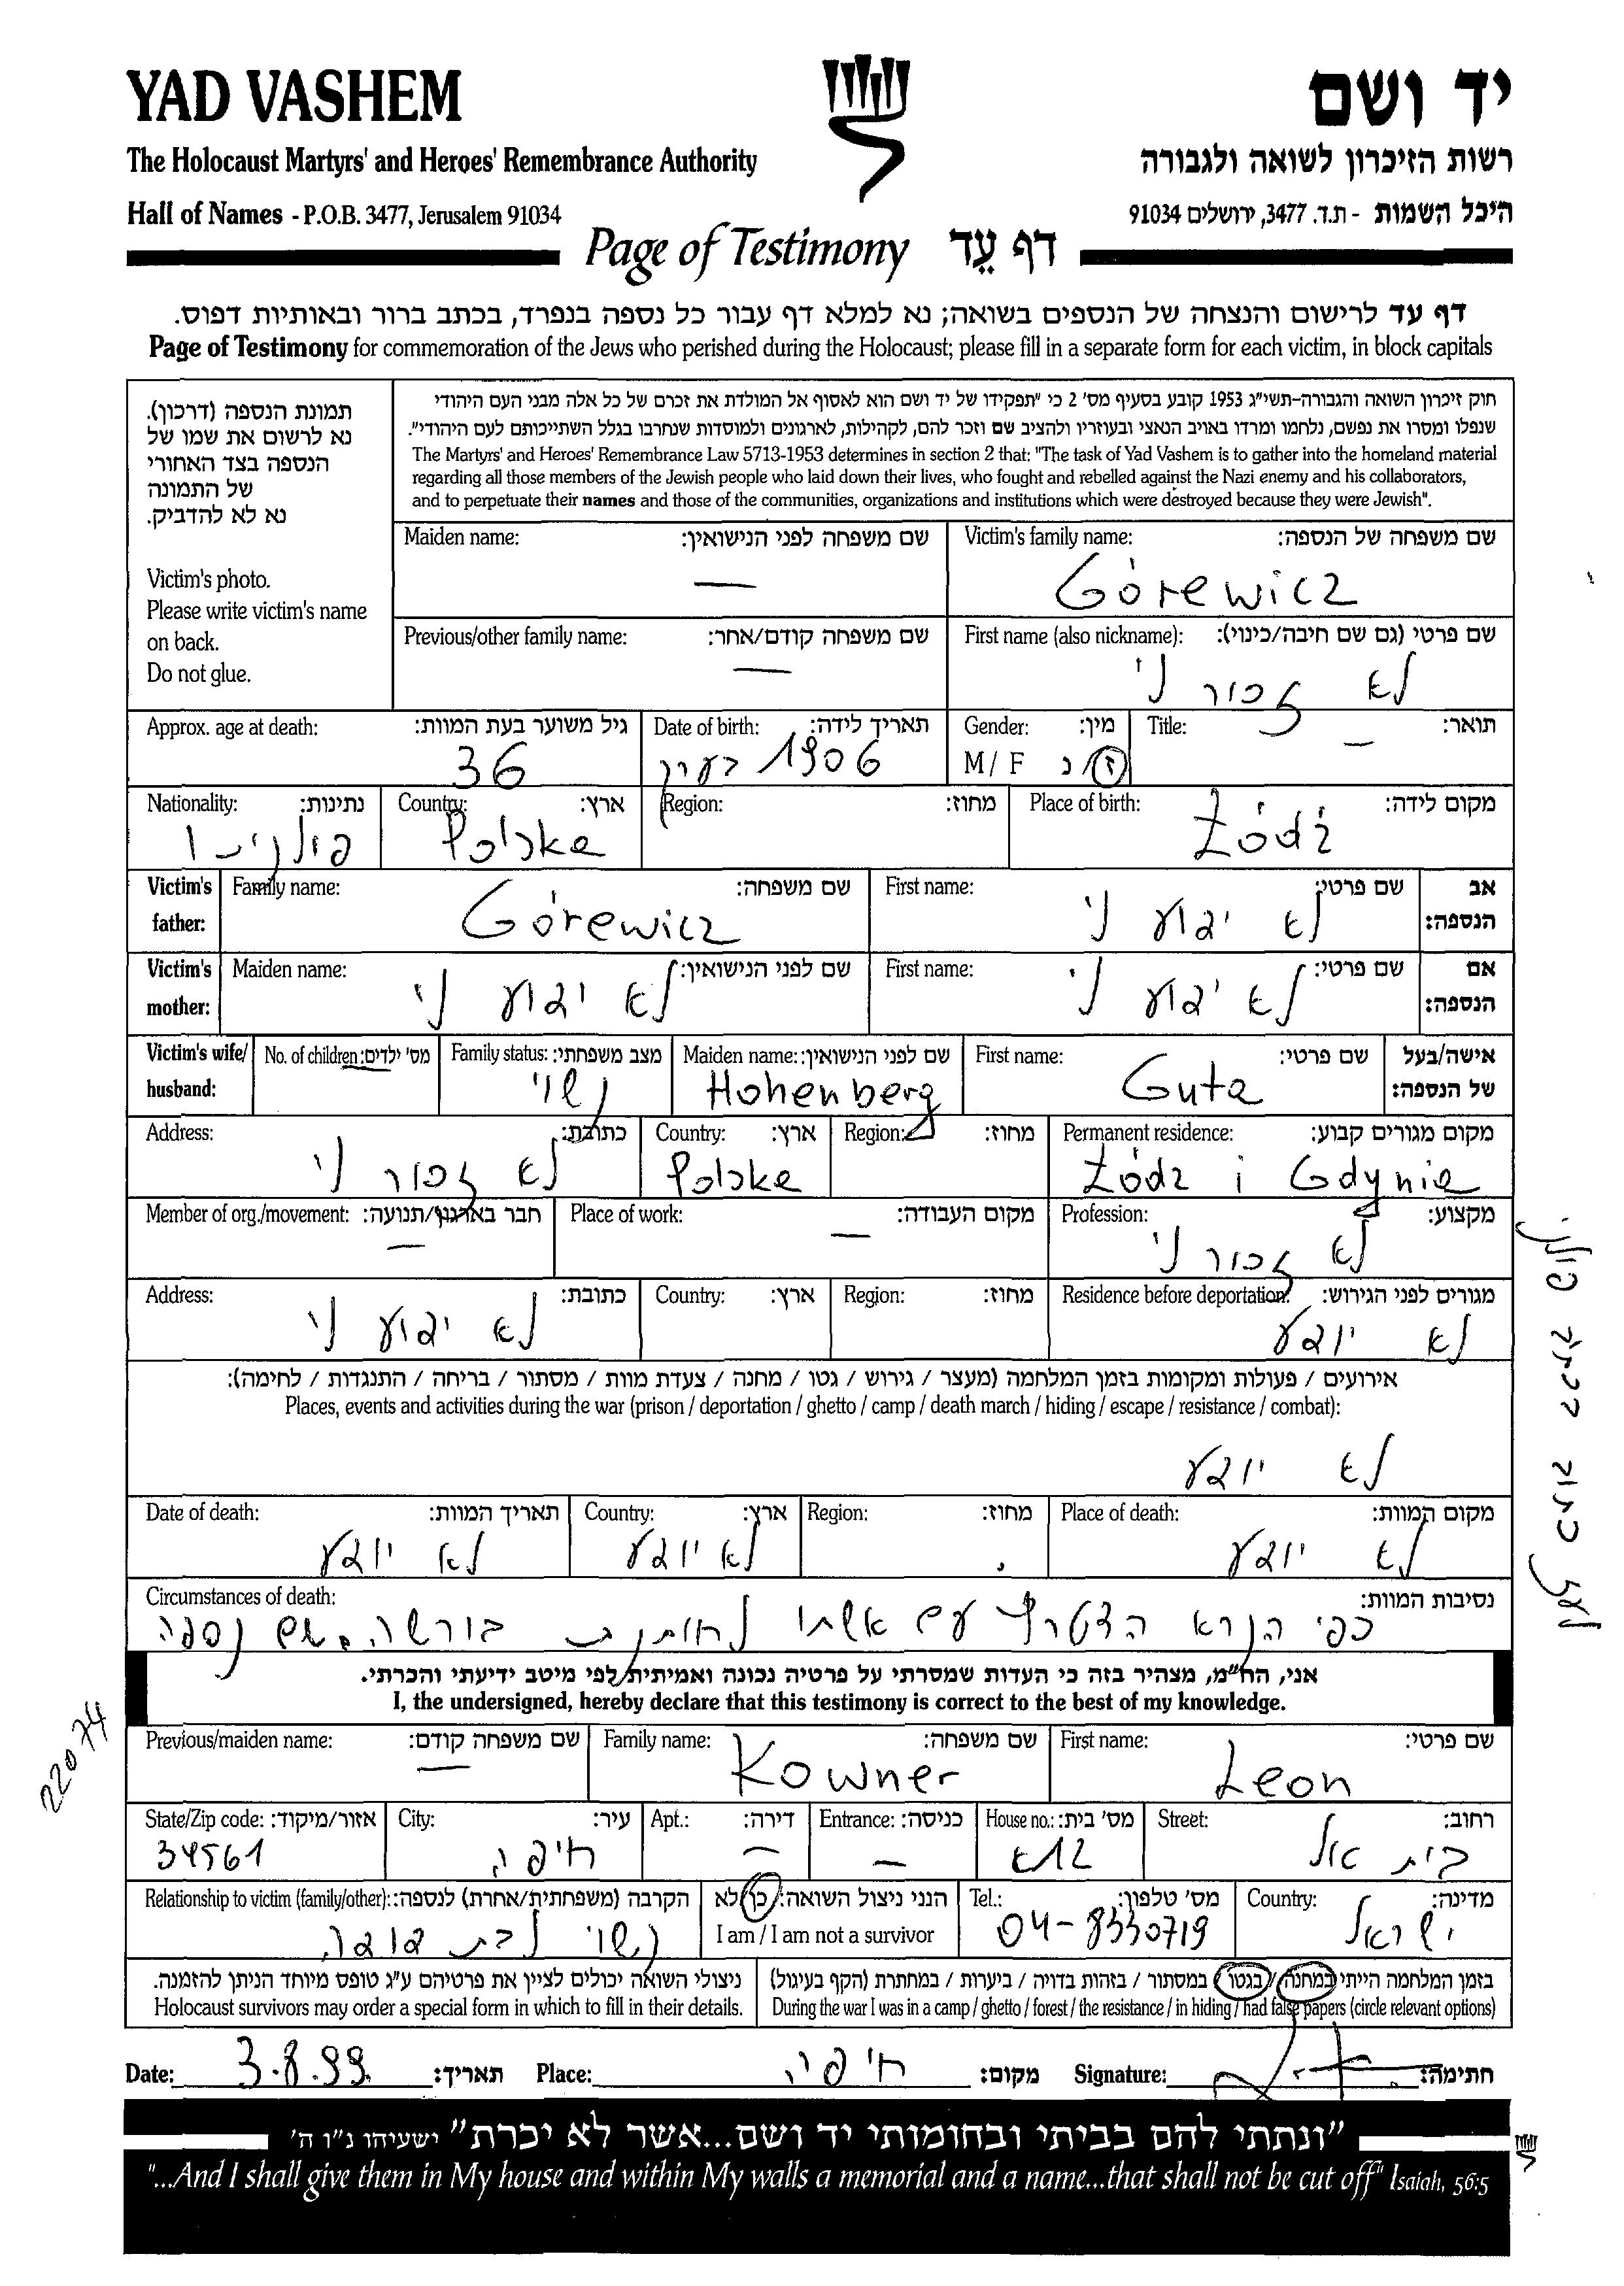 YAD VASHEM
יד ושם
The Holocaust Martyrs' and Heroes' Remembrance Authority
רשות הזיכרון לשואה ולגבורה
Hall of Names - P.O.B. 3477, Jerusalem 91034
היכל השמות - ת.ד. 3477, ירושלים 91034
Page of Testimony דף עֵד
דף עד לרישום והנצחה של הנספים בשואה; נא למלא דף עבור כל נספה בנפרד, בכתב ברור ובאותיות דפוס.
Page of Testimony for commemoration of the Jews who perished during the Holocaust; please fill in a separate form for each victim, in block capitals
תמונת הנספה (דרכון).
נא לרשום את שמו של
הנספה בצד האחורי
של התמונה
נא לא להדביק.
Victim's photo.
Please write victim's name
on back.
Do not glue.
חוק זיכרון השואה והגבורה-תשי"ג 1953 קובע בסעיף מס' 2 כי "תפקידו של יד ושם הוא לאסוף אל המולדת את זכרם של כל אלה מבני העם היהודי
שנפלו ומסרו את נפשם, נלחמו ומרדו באויב הנאצי ובעוזריו ולהציב שם וזכר להם, לקהילות, לארגונים ולמוסדות שנחרבו בגלל השתייכותם לעם היהודי".
The Martyrs' and Heroes' Remembrance Law 5713-1953 determines in section 2 that: "The task of Yad Vashem is to gather into the homeland material
regarding all those members of the Jewish people who laid down their lives, who fought and rebelled against the Nazi enemy and his collaborators,
and to perpetuate their names and those of the communities, organizations and institutions which were destroyed because they were Jewish".
Maiden name: שם משפחה לפני הנישואין: Victim's family name: שם משפחה של הנספה:
— Górewicz
Previous/other family name: שם משפחה קודם/אחר: First name (also nickname): שם פרטי (גם שם חיבה/כינוי):
— לא זכור לי
Approx. age at death: גיל משוער בעת המוות: Date of birth: תאריך לידה: Gender: מין: Title: תואר:
36 1906 בערך M / F ז/נ —
Nationality: נתינות: Country: ארץ: Region: מחוז: Place of birth: מקום לידה:
Polska Łódź
Victim's father: Family name: שם משפחה: First name: שם פרטי: אב הנספה:
Górewicz לא ידוע לי
Victim's mother: Maiden name: שם לפני הנישואין: First name: שם פרטי: אם הנספה:
לא ידוע לי לא ידוע לי
Victim's wife/ husband: No. of children: מס' ילדים: Family status: מצב משפחתי: Maiden name: שם לפני הנישואין: First name: שם פרטי: אישה/בעל של הנספה:
נשוי Hohenberg Guta
Address: כתובת: Country: ארץ: Region: מחוז: Permanent residence: מקום מגורים קבוע:
לא זכור לי Polska Łódź i Gdynia
Member of org./movement: חבר בארגון/תנועה: Place of work: מקום העבודה: Profession: מקצוע:
— — לא זכור לי
Address: כתובת: Country: ארץ: Region: מחוז: Residence before deportation: מגורים לפני הגירוש:
לא ידוע לי לא יודע
אירועים / פעולות ומקומות בזמן המלחמה (מעצר / גירוש / גטו / מחנה / צעדת מוות / מסתור / בריחה / התנגדות / לחימה):
Places, events and activities during the war (prison / deportation / ghetto / camp / death march / hiding / escape / resistance / combat):
לא יודע
Date of death: תאריך המוות: Country: ארץ: Region: מחוז: Place of death: מקום המוות:
לא יודע לא יודע לא יודע
Circumstances of death: נסיבות המוות:
כפי הנראה הצטרף עם אשתו לחותנת בורשה ושם נספה
אני, הח"מ, מצהיר בזה כי העדות שמסרתי על פרטיה נכונה ואמיתית לפי מיטב ידיעתי והכרתי.
I, the undersigned, hereby declare that this testimony is correct to the best of my knowledge.
Previous/maiden name: שם משפחה קודם: Family name: שם משפחה: First name: שם פרטי:
— Kowner Leon
State/Zip code: אזור/מיקוד: City: עיר: Apt.: דירה: Entrance: כניסה: House no.: מס' בית: Street: רחוב:
34561 חיפה — — 12א בית אל
Relationship to victim (family/other): הקרבה (משפחתית/אחרת) לנספה: הנני ניצול השואה: כן/לא Tel.: מס' טלפון: Country: מדינה:
נשוי לבת דודה I am / I am not a survivor 04-8330719 ישראל
ניצולי השואה יכולים לציין את פרטיהם ע"ג טופס מיוחד הניתן להזמנה. בזמן המלחמה הייתי במחנה / בגטו / במסתור / בזהות בדויה / ביערות / במחתרת (הקף בעיגול)
Holocaust survivors may order a special form in which to fill in their details. During the war I was in a camp / ghetto / forest / the resistance / in hiding / had false papers (circle relevant options)
Date: 3.8.99 תאריך: Place: חיפה מקום: Signature: חתימה:
"ונתתי להם בביתי ובחומותי יד ושם...אשר לא יכרת" ישעיהו נ"ו ה'
"...And I shall give them in My house and within My walls a memorial and a name...that shall not be cut off" Isaiah, 56:5
22074